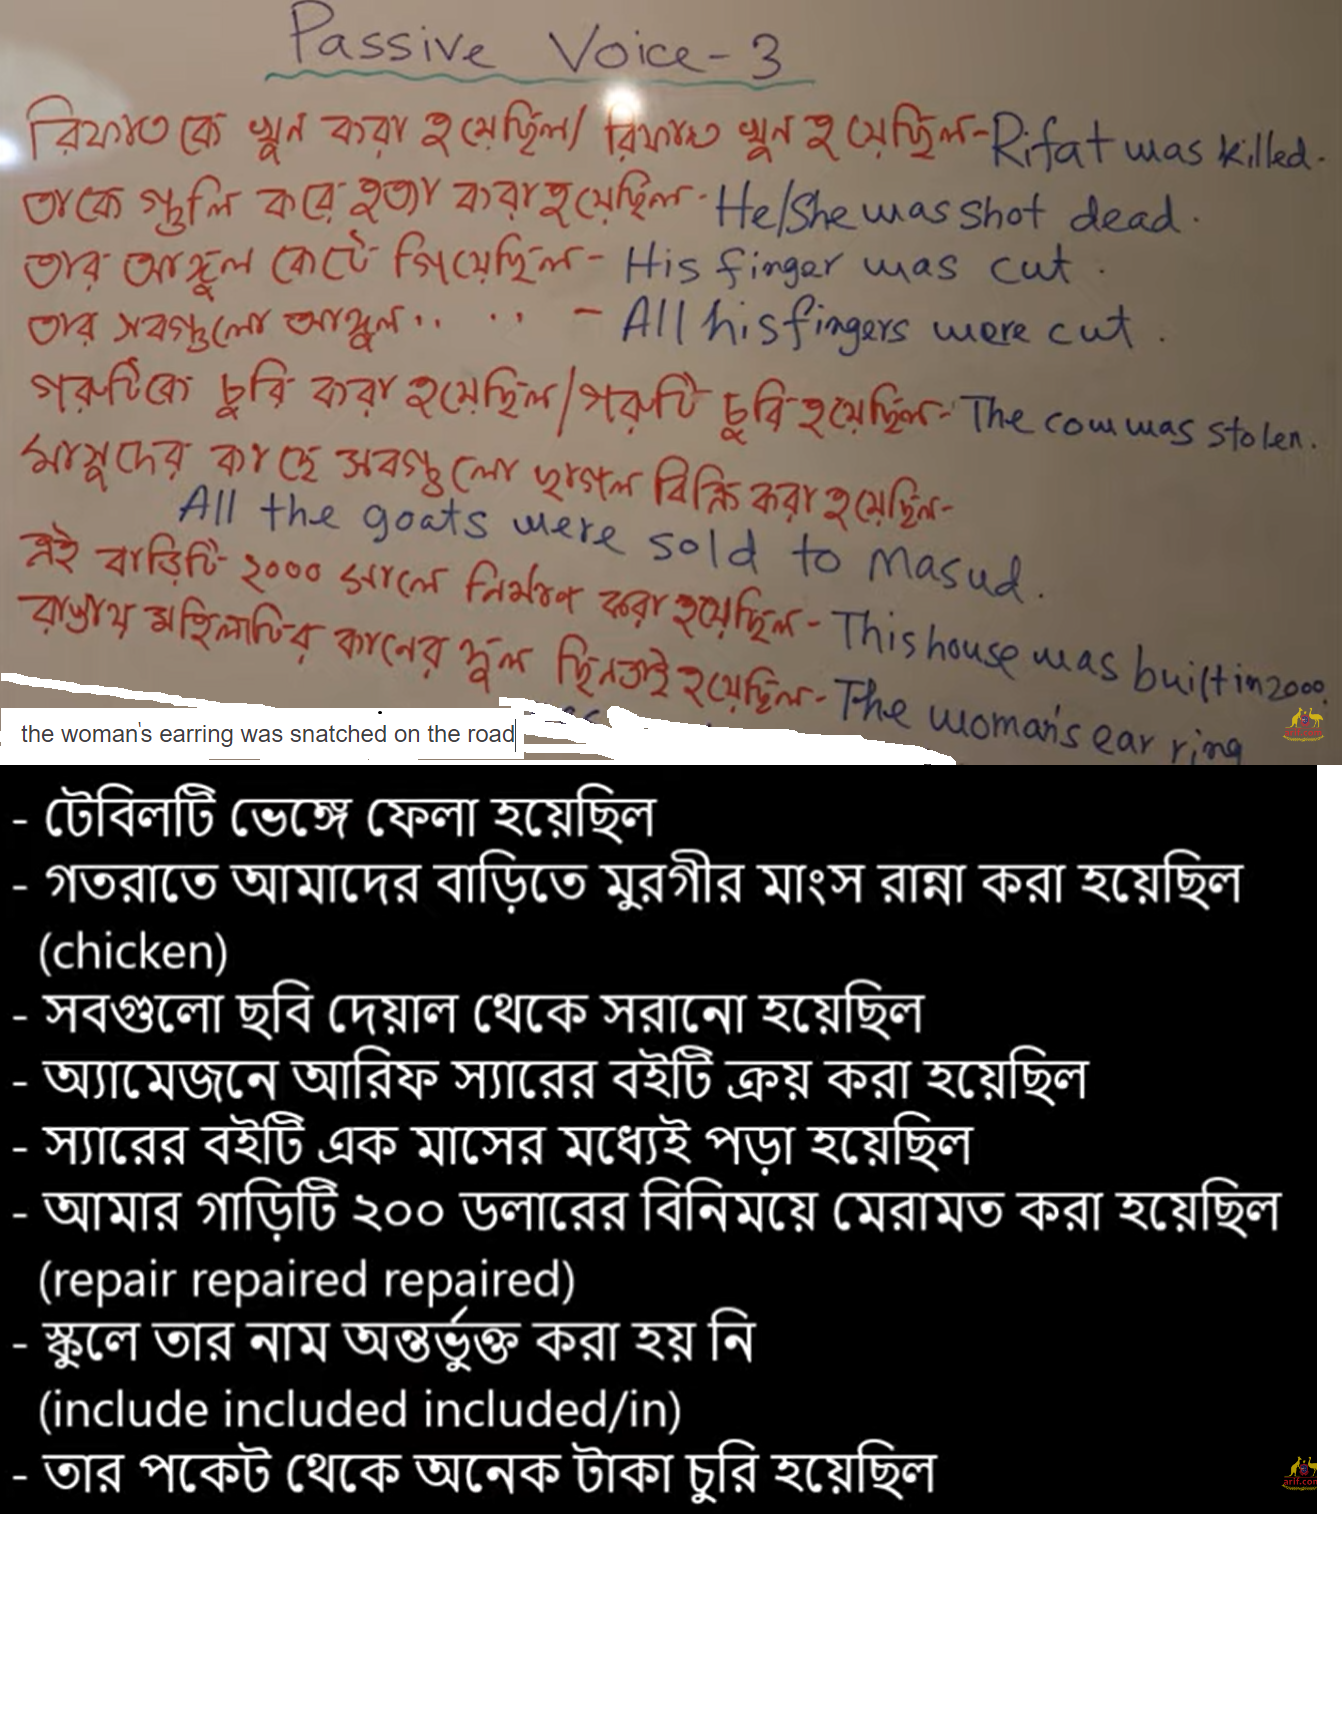 Passive Voice-3
রিফাত কে খুন করা হয়েছিল/ রিফাত খুন হয়েছিল-Rifat was killed.
তাকে গুলি করে হত্যা করা হয়েছিল- He/She was shot dead.
তার আঙ্গুল কেটে গিয়েছিল- His finger was cut.
তার সবগুলো আঙ্গুল.. .. - All his fingers were cut.
গরুটিকে চুরি করা হয়েছিল/গরুটি চুরি হয়েছিল- The cow was stolen.
মাসুদের কাছে সবগুলো ছাগল বিক্রি করা হয়েছিল-
All the goats were sold to Masud.
এই বাড়িটি ২০০০ সালে নির্মাণ করা হয়েছিল- This house was built in 2000.
রাস্তায় মহিলাটির কানের দুল ছিনতাই হয়েছিল- The woman's ear ring
the woman's earring was snatched on the road
- টেবিলটি ভেঙ্গে ফেলা হয়েছিল
- গতরাতে আমাদের বাড়িতে মুরগীর মাংস রান্না করা হয়েছিল
(chicken)
- সবগুলো ছবি দেয়াল থেকে সরানো হয়েছিল
- অ্যামেজনে আরিফ স্যারের বইটি ক্রয় করা হয়েছিল
- স্যারের বইটি এক মাসের মধ্যেই পড়া হয়েছিল
- আমার গাড়িটি ২০০ ডলারের বিনিময়ে মেরামত করা হয়েছিল
(repair repaired repaired)
- স্কুলে তার নাম অন্তর্ভুক্ত করা হয় নি
(include included included/in)
- তার পকেট থেকে অনেক টাকা চুরি হয়েছিল